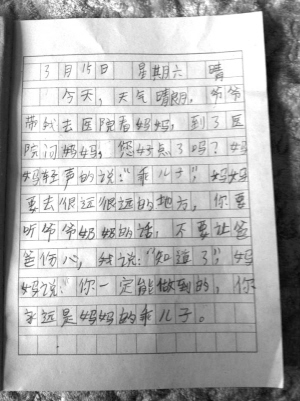 3月15日 星期六 晴
今天，天气晴朗，爷爷
带我去医院看妈妈，到了医
院问妈妈，您好点了吗？妈
妈轻声的说：“乖儿子，妈妈
要去很远很远的地方，你要
听爷爷奶奶的话，不要让爸
爸伤心，我说：“知道了”，妈
妈说：“你一定能做到的，你
永远是妈妈的乖儿子。